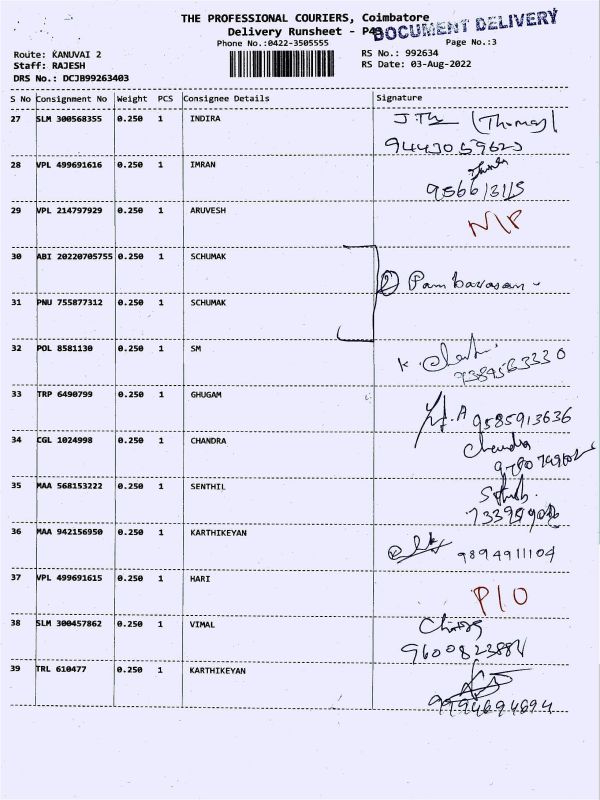 THE PROFESSIONAL COURIERS, Coimbatore
DOCUMENT DELIVERY
Delivery Runsheet - P4
Phone No.:0422-3505555
Page No.:3
Route: KANUVAI 2
RS No.: 992634
Staff: RAJESH
RS Date: 03-Aug-2022
DRS No.: DCJB99263403
S No Consignment No Weight PCS Consignee Details Signature
27 SLM 300568355 0.250 1 INDIRA J.Th (Thomas)
28 VPL 499691616 0.250 1 IMRAN
29 VPL 214797929 0.250 1 ARUVESH N/P
30 ABI 20220705755 0.250 1 SCHUMAK
② Pambarasan
31 PNU 755877312 0.250 1 SCHUMAK
32 POL 8581130 0.250 1 SM
33 TRP 6490799 0.250 1 GHUGAM
9585913636
34 CGL 1024998 0.250 1 CHANDRA Chandra
35 MAA 568153222 0.250 1 SENTHIL
36 MAA 942156950 0.250 1 KARTHIKEYAN
9894911104
37 VPL 499691615 0.250 1 HARI P/O
38 SLM 300457862 0.250 1 VIMAL
39 TRL 610477 0.250 1 KARTHIKEYAN
9994694694